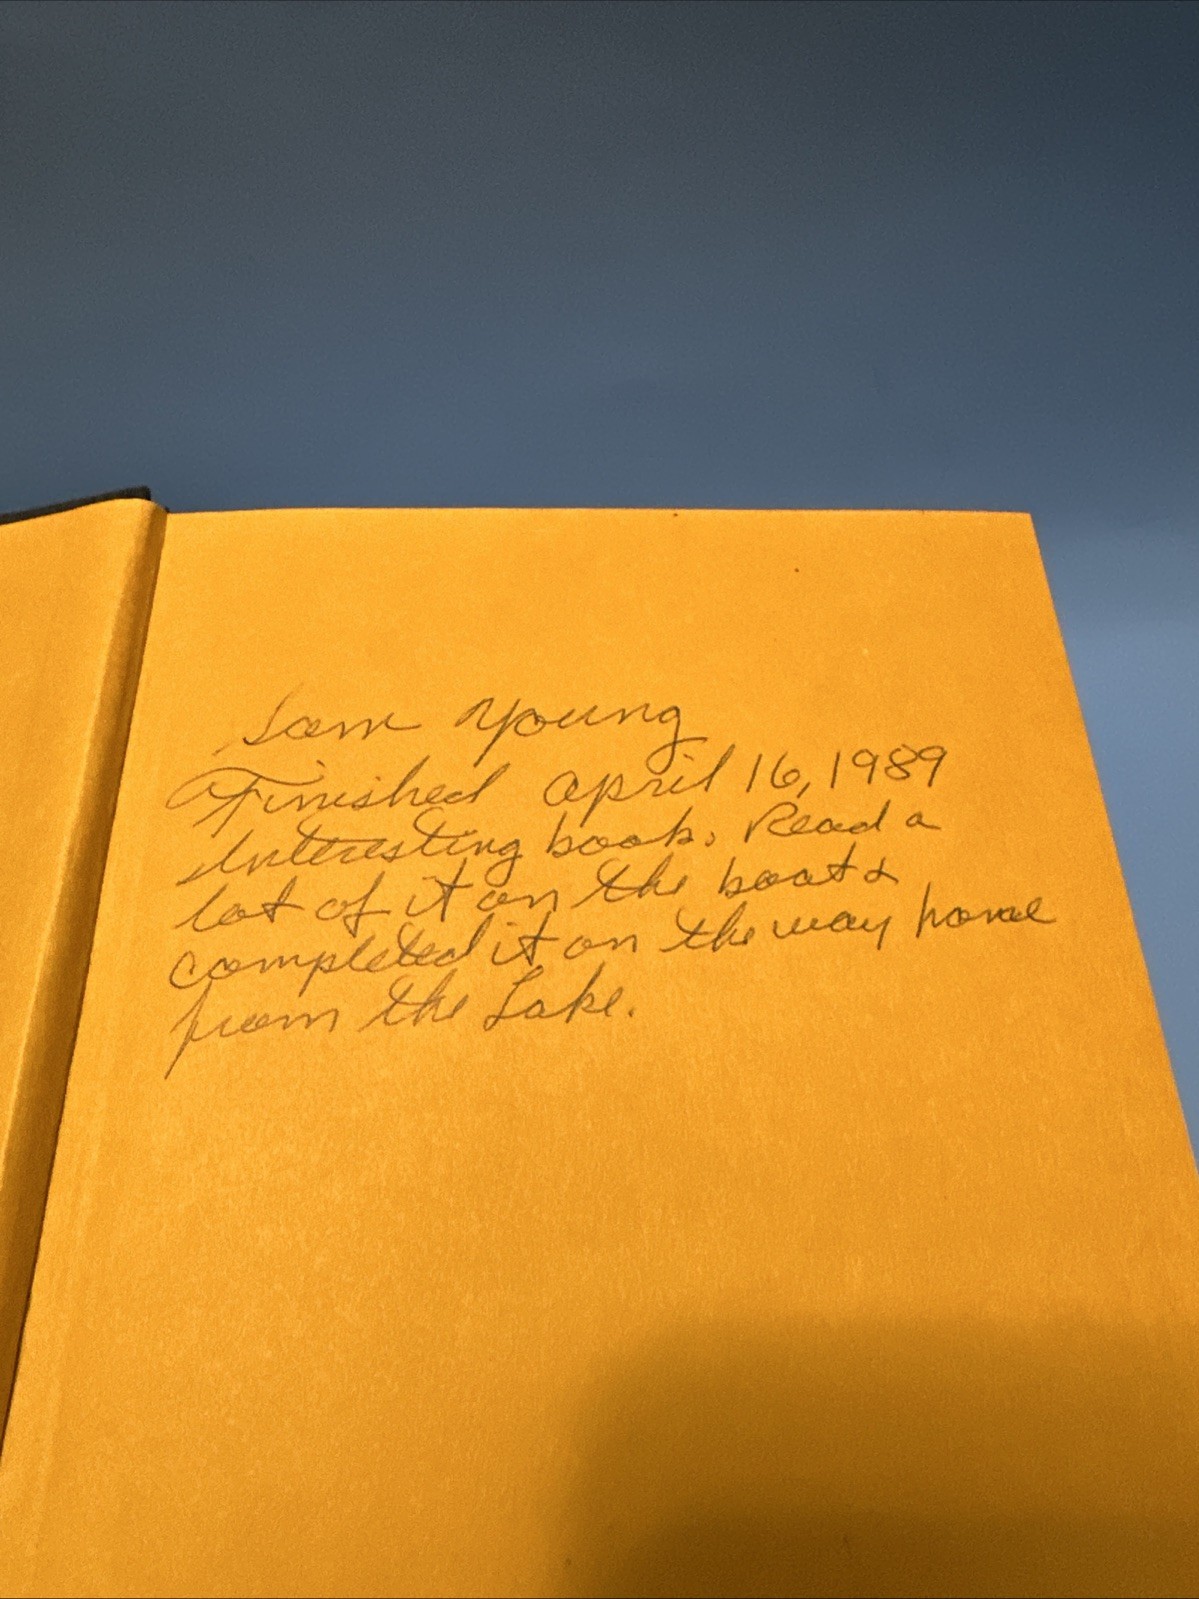 Sam Young
Finished April 16, 1989
Interesting book. Read a
lot of it on the boat &
completed it on the way home
from the Lake.